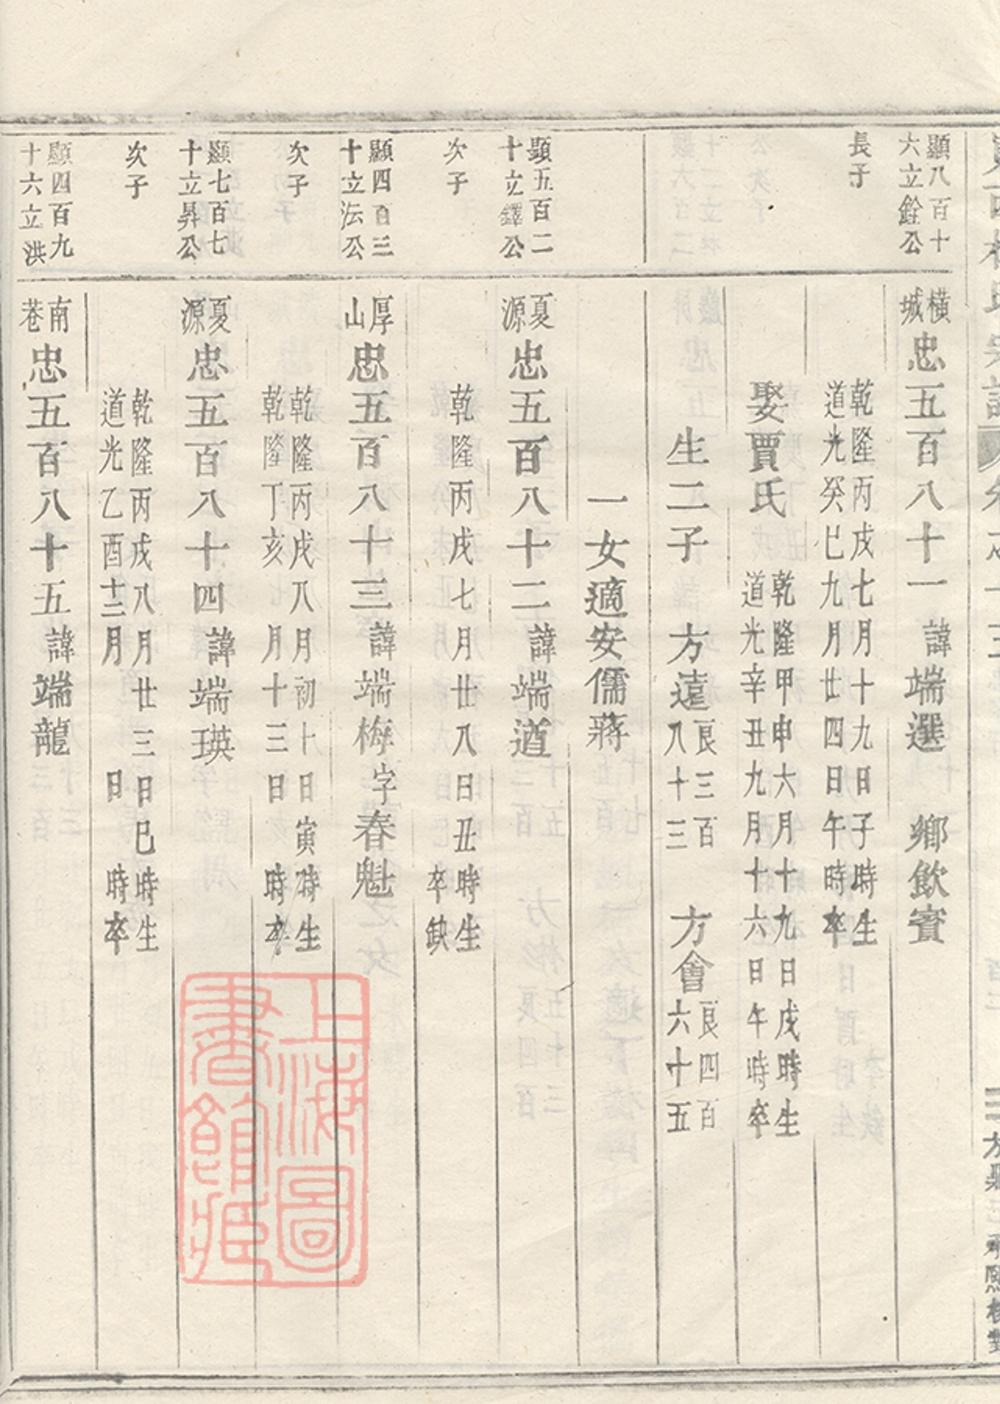 顯八百十
六立銓公
長子
橫城
忠五百八十一 諱端選 鄉飲賓
乾隆丙戌七月十九日子時生
道光癸巳九月廿四日午時卒
娶賈氏
乾隆甲申六月十九日戌時生
道光辛丑九月十六日午時卒
生二子 方遠 良三百八十三 方會 良四百六十五
一女適安儒蔣
顯五百二
十立鐸公
次子
夏源
忠五百八十二 諱端道
乾隆丙戌七月廿八日丑時生
卒缺
顯四百三
十立法公
次子
厚山
忠五百八十三 諱端梅 字春魁
乾隆丙戌八月初十日寅時生
乾隆丁亥月十三日時卒
顯七百七
十立昇公
次子
夏源
忠五百八十四 諱端瑛
乾隆丙戌八月廿三日巳時生
道光乙酉十二月日時卒
顯四百九
十六立洪
南巷
忠五百八十五 諱端龍
上海圖書館藏